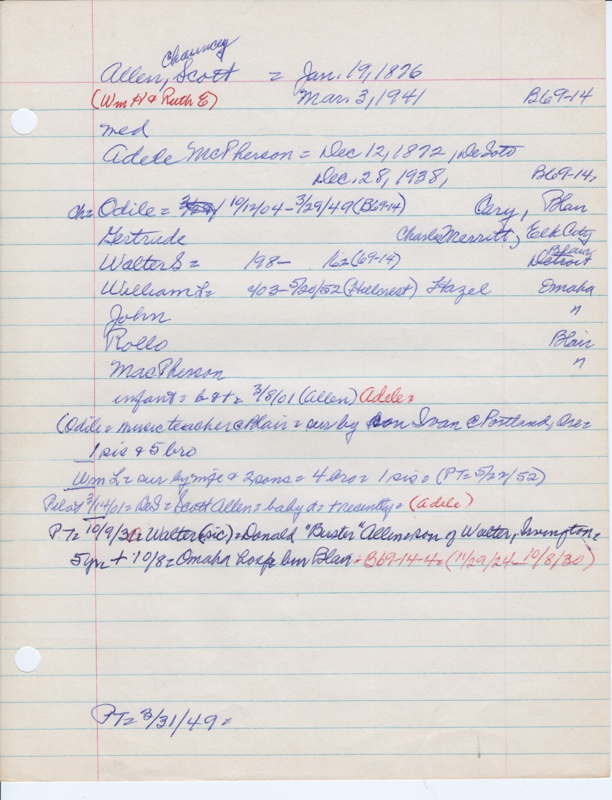 Chauncey
Allen, Scott = Jan. 19, 1876
(Wm H & Ruth E) Mar. 3, 1941 B69-14
med
Adele McPherson = Dec 12, 1872, DeSoto
Dec. 28, 1938, B69-14.
ch= Odile = 10/12/04-3/29/49 (B69-14) Cery, Blair
Gertrude Charles Merritt, Elk City
Walter S = 198- 162 (69-14) Blair Detroit
William L= 403-5/20/52 (Hillcrest) Hazel Omaha
John "
Rollo Blair
MacPherson "
infant = b & d = 3/8/01 (Allen) Adele =
(Odile = music teacher @ Blair = sur by son Ivan @ Portland, Ore =
1 sis & 5 bro
Wm L = sur by wife & 2 sons = 4 bro = 1 sis = (PT= 5/22/52)
Pilot 3/14/01 = DeS = Scott Allen = baby d = + recently = (Adele)
PT= 10/9/30= Walter (sic) = Donald "Buster" Allen = son of Walter, Irvington =
5 yr + 10/8 = Omaha hosp bur Blair = B69-14-4 = (11/29/24-10/8/30)
PT= 3/31/49 =